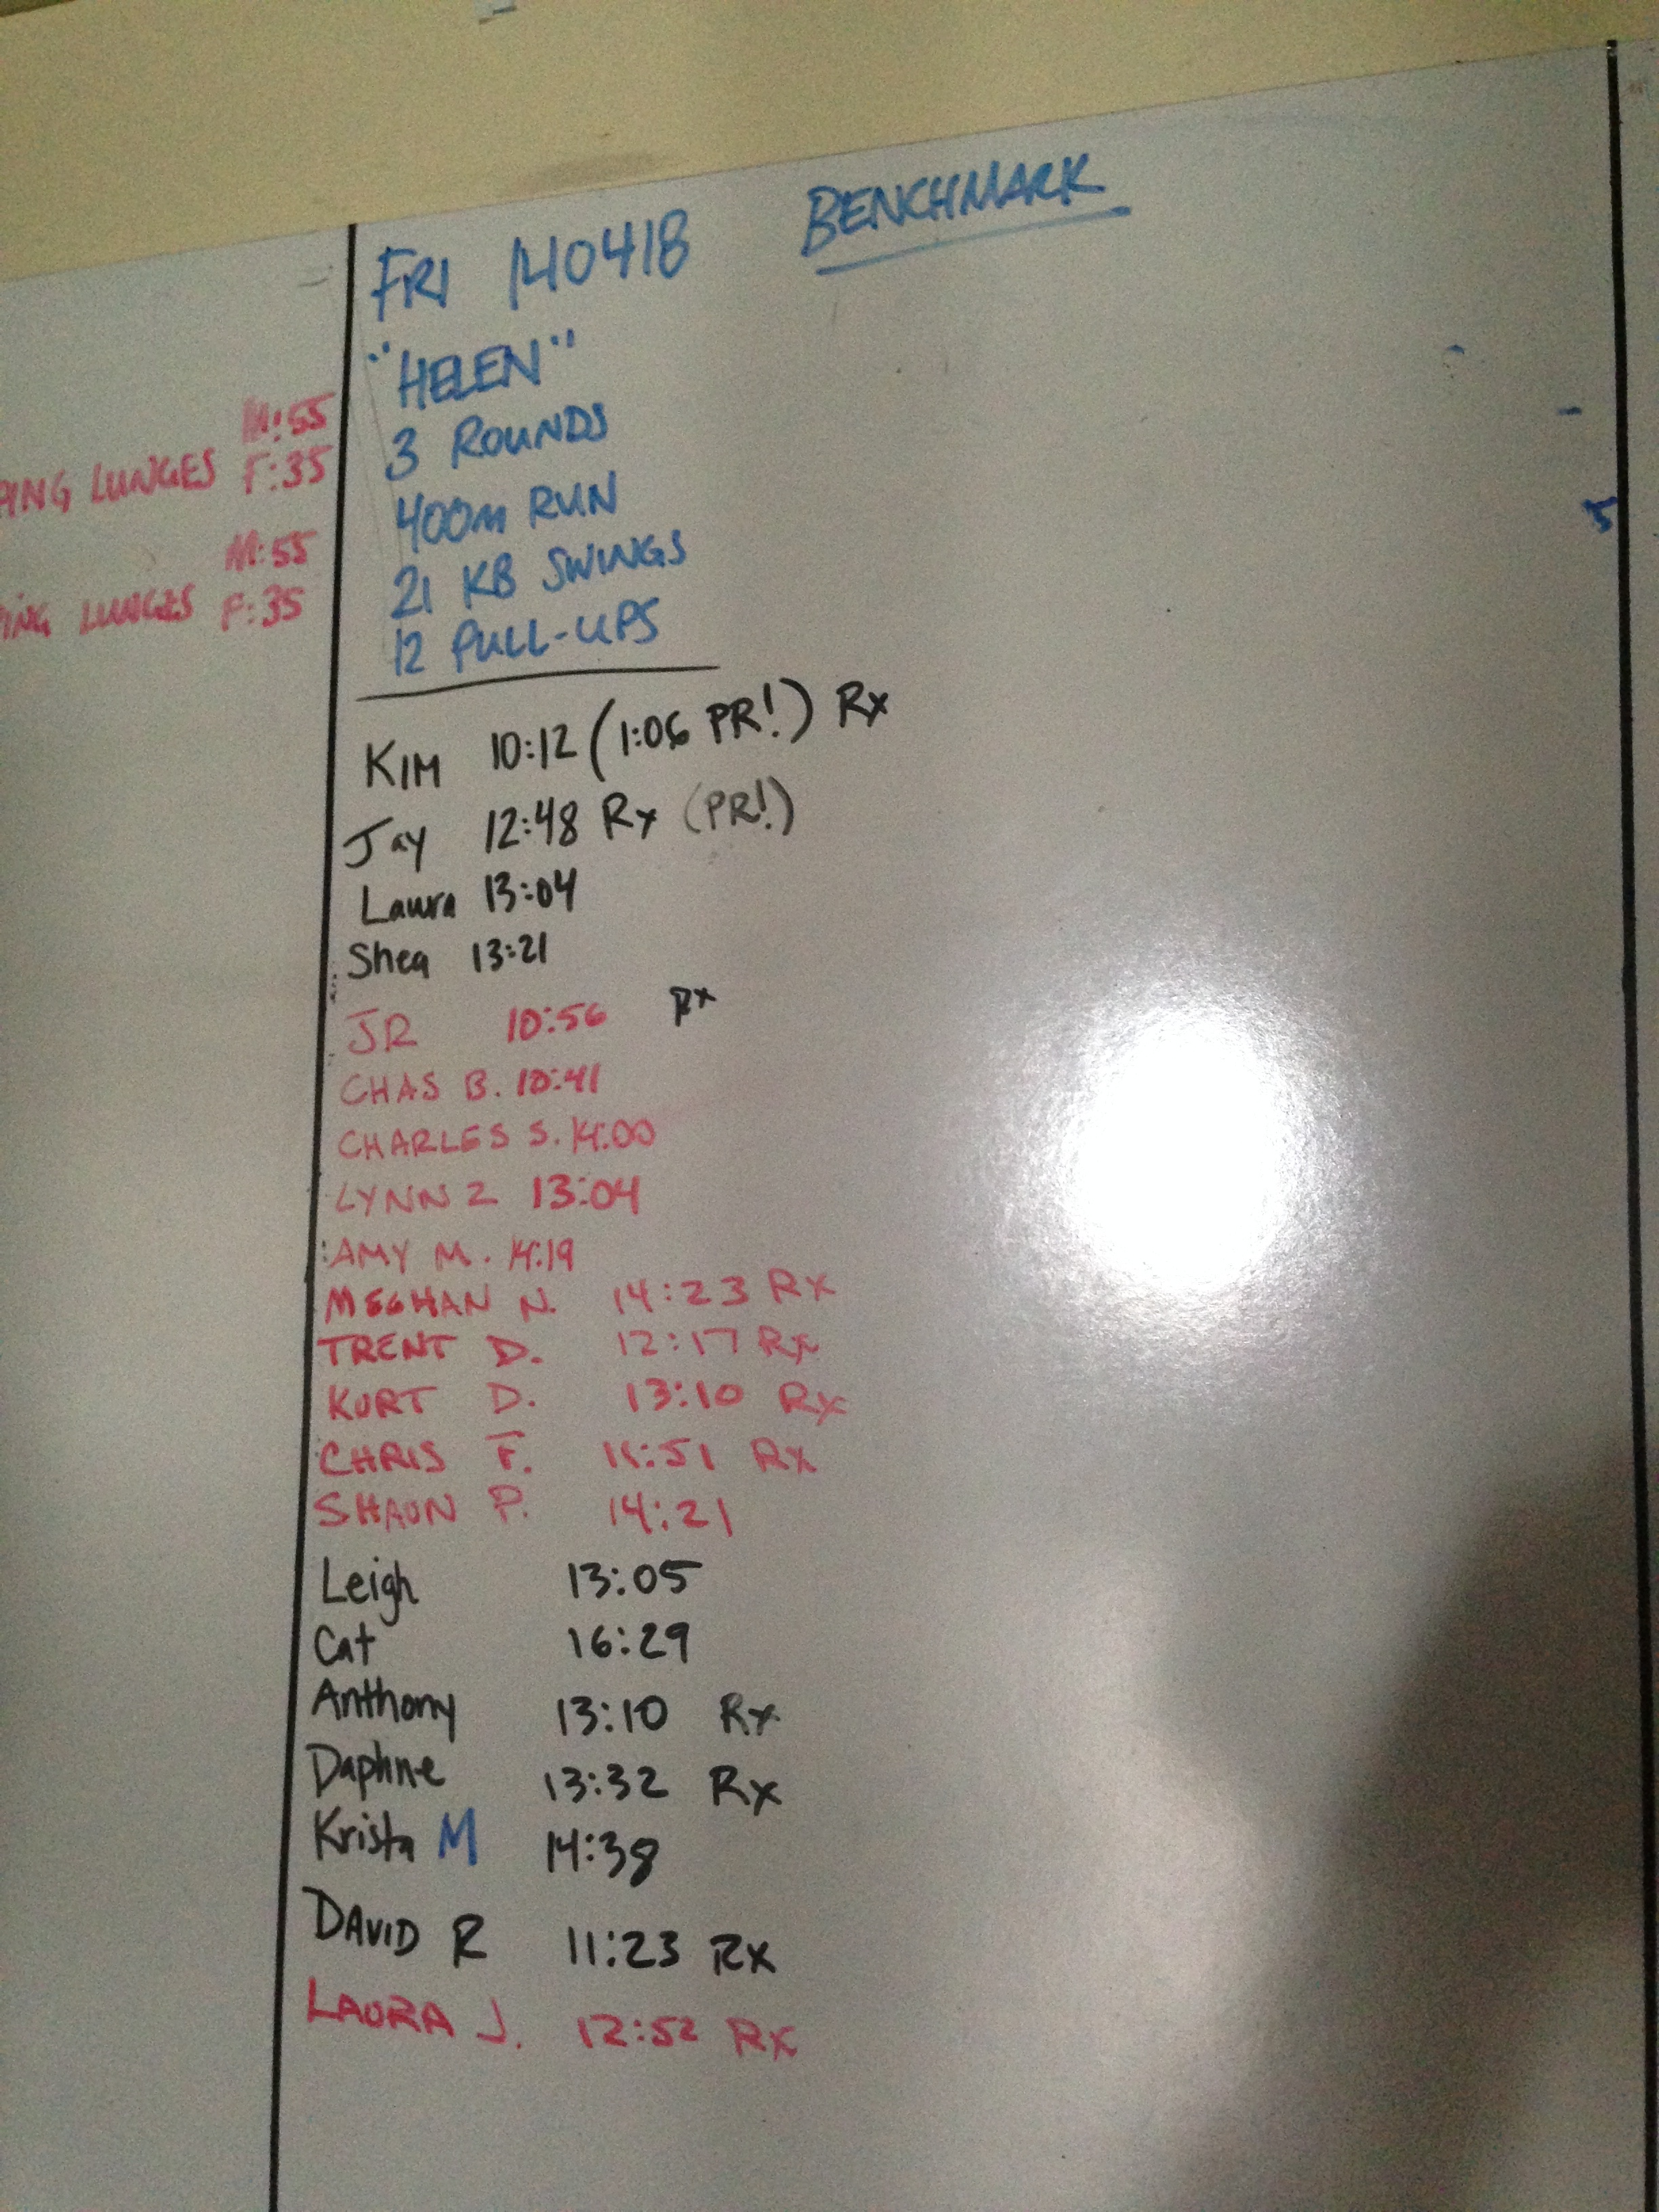 FRI 140418 BENCHMARK
"HELEN"
3 ROUNDS
400m RUN
21 KB SWINGS
12 PULL-UPS
M:55
LUNGES F:35
M:55
LUNGES F:35
5
KIM 10:12 (1:06 PR!) Rx
Jay 12:48 Rx (PR!)
Laura 13:04
Shea 13:21
JR 10:56 Rx
CHAS B. 10:41
CHARLES S. 14:00
LYNN Z 13:04
AMY M. 14:19
MEGHAN N. 14:23 Rx
TRENT D. 12:17 Rx
KURT D. 13:10 Rx
CHRIS F. 11:51 Rx
SHAUN P. 14:21
Leigh 13:05
Cat 16:29
Anthony 13:10 Rx
Daphne 13:32 Rx
Krista M 14:38
DAVID R 11:23 Rx
LAURA J. 12:52 Rx